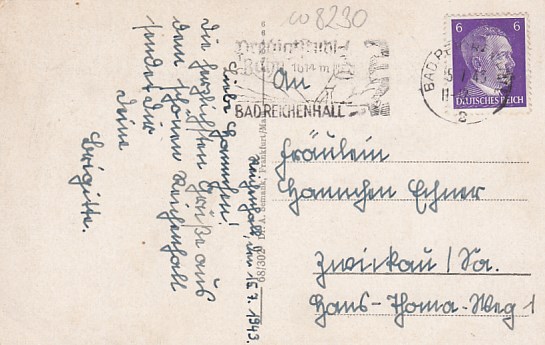 w 8230
Predigtstuhl-
Bahn 1614 m
BADREICHENHALL
BAD
6 6
DEUTSCHES REICH
Reichenhall, den 15.7.1943.
Liebe Hannchen!
Die herzlichsten Grüße aus
dem schönen Reichenhall
sendet Dir
Deine
Brigitte.
68/302 Fr. A. Schaack, Frankfurt/Ma
An
Fräulein
Hannchen Exner
Zwickau/Sa.
Hans-Thoma-Weg 1